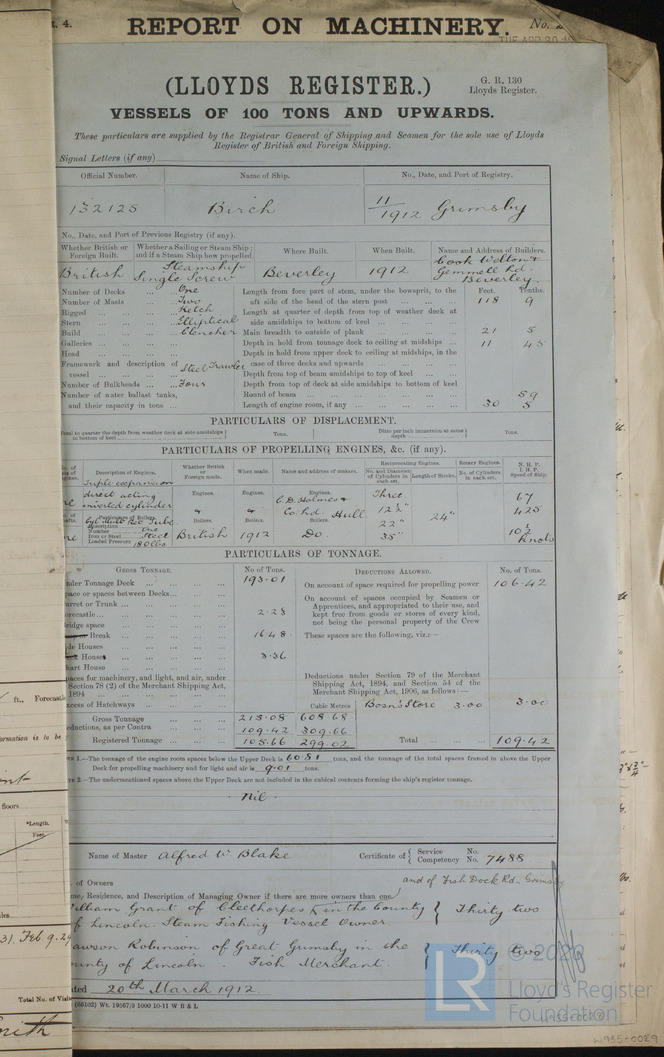 t. 4. REPORT ON MACHINERY. No. 2
TUE APR 30 19
(LLOYDS REGISTER.) G. R. 130
Lloyds Register.
VESSELS OF 100 TONS AND UPWARDS.
These particulars are supplied by the Registrar General of Shipping and Seamen for the sole use of Lloyds
Register of British and Foreign Shipping.
Signal Letters (if any)
Official Number. Name of Ship. No., Date, and Port of Registry.
132125 Birch 11/1912 Grimsby
No., Date, and Port of Previous Registry (if any).
Whether British or Foreign Built. Whether a Sailing or Steam Ship; and if a Steam Ship how propelled. Where Built. When Built. Name and Address of Builders.
British Steamship Single Screw Beverley 1912 Cook Welton & Gemmell Ld. Beverley.
Number of Decks ... One
Number of Masts ... Two
Rigged ... Ketch
Stern ... Elliptical
Build ... Clencher
Galleries ...
Head ...
Framework and description of vessel ... Steel Trawler
Number of Bulkheads ... Four
Number of water ballast tanks,
and their capacity in tons ...
Feet. Tenths.
Length from fore part of stem, under the bowsprit, to the
aft side of the head of the stern post ... 118 9
Length at quarter of depth from top of weather deck at
side amidships to bottom of keel ...
Main breadth to outside of plank ... 21 5
Depth in hold from tonnage deck to ceiling at midships ... 11 45
Depth in hold from upper deck to ceiling at midships, in the
case of three decks and upwards ...
Depth from top of beam amidships to top of keel ...
Depth from top of deck at side amidships to bottom of keel
Round of beam ... 59
Length of engine room, if any ... 30 5
PARTICULARS OF DISPLACEMENT.
Total to quarter the depth from weather deck at side amidships to bottom of keel Tons. Ditto per inch immersion at same depth Tons.
PARTICULARS OF PROPELLING ENGINES, &c. (if any).
Description of Engines. Whether British or Foreign made. When made. Name and address of makers. Reciprocating Engines. Rotary Engines. N. H. P.
No. and Diameter of Cylinders in each set. Length of Stroke. No. of Cylinders in each set. I. H. P. Speed of Ship.
Triple expansion
direct acting
inverted cylinder
Engines. Engines. Engines.
& & C.D. Holmes & Co. Ld. Hull
Three
12½"
22"
35"
24"
67
425
10½ knots
Particulars of Boilers.
Description
Number One
Iron or Steel Steel
Loaded Pressure 180 lbs
Boilers. Boilers. Boilers.
British 1912 Do.
PARTICULARS OF TONNAGE.
GROSS TONNAGE. No of Tons.
nder Tonnage Deck ... 193.01
pace or spaces between Decks ...
urret or Trunk ...
orecastle ... 2.23
ridge space
Break ... 16.48
de Houses
House ... 3.36
hart House
paces for machinery, and light, and air, under
Section 78 (2) of the Merchant Shipping Act,
1894
xcess of Hatchways ... Cubic Metres
Gross Tonnage ... 215.08 608.68
eductions, as per Contra ... 109.42 309.66
Registered Tonnage ... 105.66 299.02
DEDUCTIONS ALLOWED. No. of Tons.
On account of space required for propelling power 106.42
On account of spaces occupied by Seamen or
Apprentices, and appropriated to their use, and
kept free from goods or stores of every kind,
not being the personal property of the Crew
These spaces are the following, viz.:—
Deductions under Section 79 of the Merchant
Shipping Act, 1894, and Section 54 of the
Merchant Shipping Act, 1906, as follows:—
Bosn's Store 3.00 3.00
Total ... 109.42
1.—The tonnage of the engine room spaces below the Upper Deck is 60.81 tons, and the tonnage of the total spaces framed in above the Upper
Deck for propelling machinery and for light and air is 9.01 tons.
2.—The undermentioned spaces above the Upper Deck are not included in the cubical contents forming the ship's register tonnage.
Nil.
Name of Master Alfred W Blake Certificate of { Service No.
Competency No. 7488
. of Owners and of Fish Dock Rd. Grimsby
me, Residence, and Description of Managing Owner if there are more owners than one
illiam Grant of Cleethorpes in the County } Thirty two
f Lincoln. Steam Fishing Vessel Owner
awson Robinson of Great Grimsby in the } Thirty two
unty of Lincoln. Fish Merchant.
ted 20th March 1912.
(66102) Wt. 19567/3 1000 10-11 W B & L
ft., Forecast
ormation is to be
floors
*Length.
Feet.
31. Feb 9.29
Total No. of Visi
LR © 2020
Lloyd's Register
Foundation
W935-0029
W935-0029